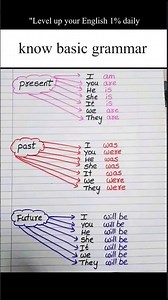 "Level up your English 1% daily
know basic grammar
present
I am
you are
He is
she is
It is
we are
They are
past
I was
you were
He was
she was
It was
we were
They were
Future
I will be
you will be
He will be
she will be
It will be
we will be
They will be